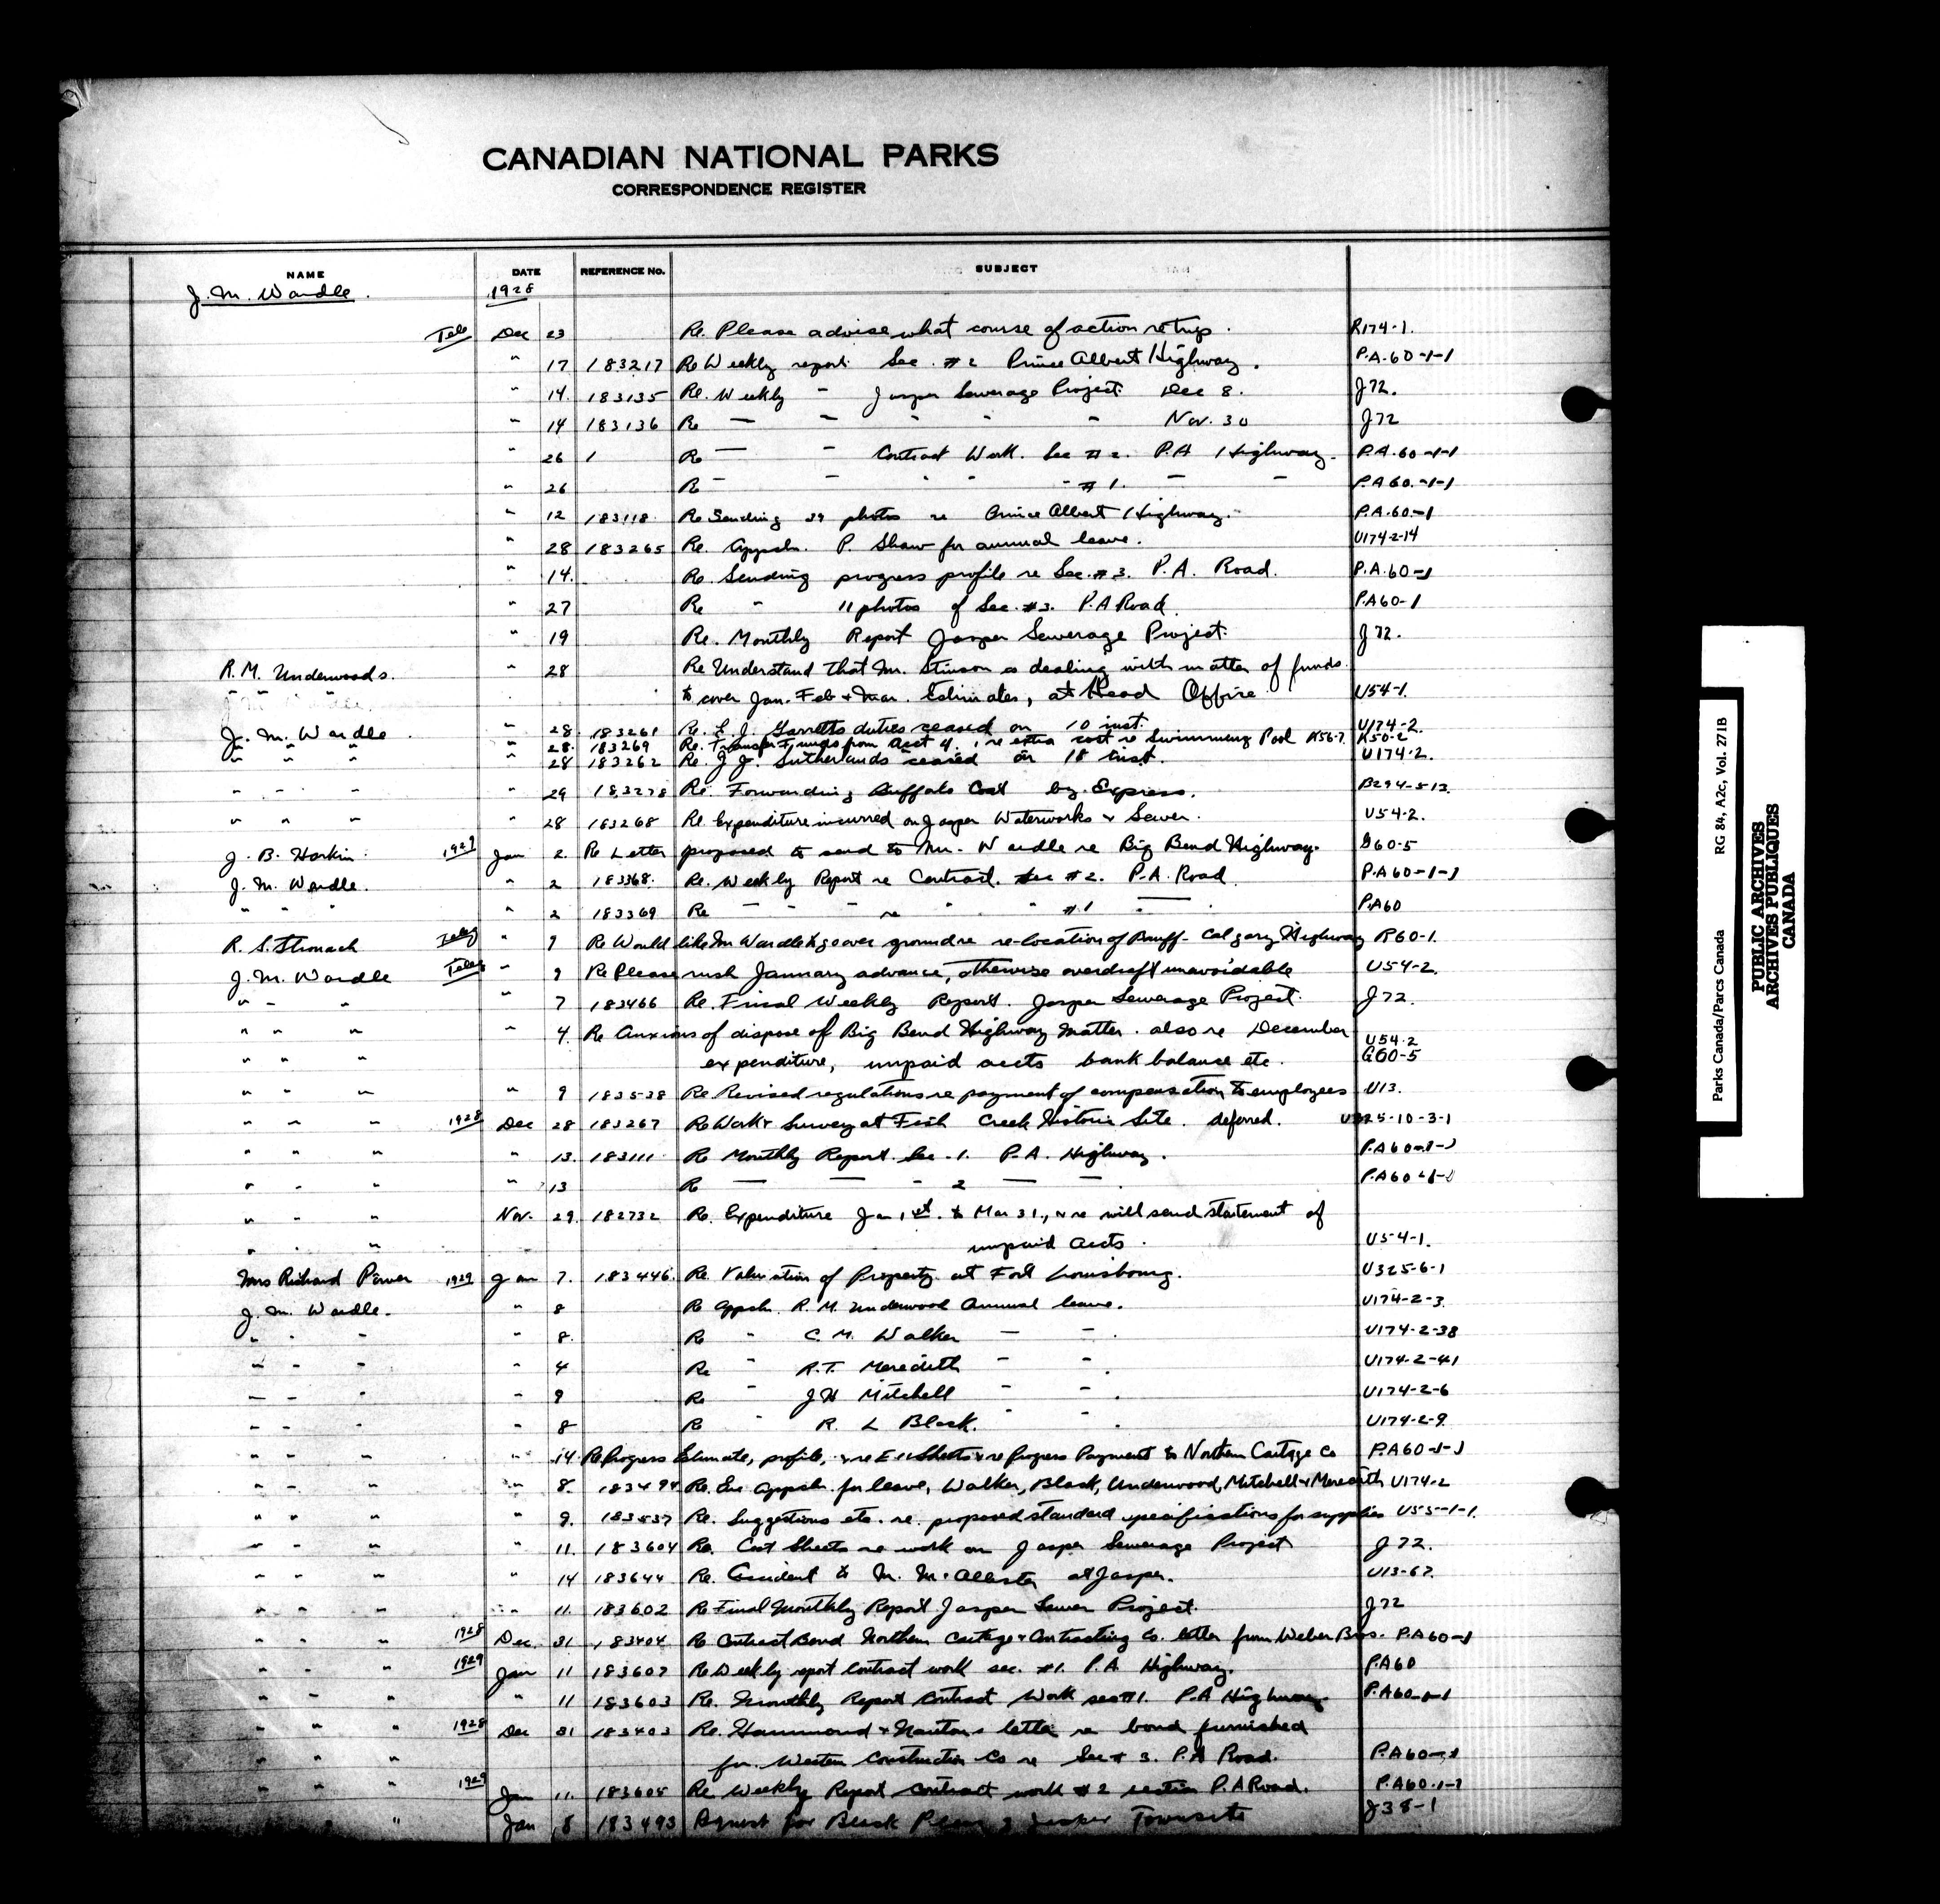 CANADIAN NATIONAL PARKS
CORRESPONDENCE REGISTER
NAME DATE REFERENCE No. SUBJECT
J. M. Wardle. 1928
Tele Dec 23 Re. Please advise what course of action re trip. R174-1.
" 17 183217 Re Weekly report Sec. #2 Prince Albert Highway. P.A.60-1-1
" 14. 183135 Re. Weekly " Jasper Sewerage Project. Dec 8. J72.
" 14 183136 Re — " " " Nov. 30 J72
" 26 1 Re — " Contract Work. Sec #2. P.A. Highway. P.A.60-1-1
" 26 Re — " " " " #1. — — P.A60.-1-1
" 12 183118 Re Sending 39 photos re Prince Albert Highway. P.A.60-1
" 28 183265 Re. Appctn. P. Shaw for annual leave. U174-2-14
" 14. Re. Sending progress profile re Sec. #3. P.A. Road. P.A.60-1
" 27 Re " 11 photos of Sec. #3. P.A Road. P.A60-1
" 19 Re. Monthly Report Jasper Sewerage Project. J72.
R. M. Underwoods. " 28 Re Understand that Mr. Stinson is dealing with matter of funds
" " " to cover Jan. Feb & Mar. Estimates, at Head Office U54-1.
J. M. Wardle " 28. 183261 Re. L. J. Garretts duties ceased on 10 inst. U174-2.
" " " " 28. 183269 Re. Transfer Funds from Acct 4., re extra cost re Swimming Pool K56-7. K50-2
" " " 28 183262 Re. J. J. Sutherlands ceased on 18 inst. U174-2.
" " " " 29 183278 Re. Forwarding Buffalo Coat by Express. B294-513.
" " " " 28 183268 Re. Expenditure incurred on Jasper Waterworks & Sewer. U54-2.
J. B. Harkin. 1929 Jan 2. Re Letter proposed to send to Mr. Wardle re Big Bend Highway. G60-5
J. M. Wardle. " 2 183368. Re. Weekly Report re Contract. Sec #2. P.A. Road. P.A60-1-1
" " " " 2 183369 Re — " re " " #1 — P.A60
R. S. Stronach Teleg " 9 Re Would like Mr Wardle to go over ground re re-location of Banff-Calgary Highway R60-1.
J. M. Wardle Teleg " 9 Re Please rush January advance, otherwise overdraft unavoidable U54-2.
" " " " 7 183466 Re. Final Weekly Report. Jasper Sewerage Project. J72.
" " " " 4. Re Anxious of dispose of Big Bend Highway Matter. also re December U54-2
" " " expenditure, unpaid accts bank balance etc. G60-5
" " " " 9 183538 Re Revised regulations re payment of compensation to employees U13.
" " " 1928 Dec 28 183267 Re Work & Survey at Fish Creek Historic Site. deferred. U325-10-3-1
" " " " 13. 183111 Re Monthly Report. Sec. 1. P.A. Highway. P.A60-1-1
" " " " 13 Re — — " 2 — — P.A60-1-1
" " " Nov. 29. 182732 Re. Expenditure Jan 1st. to Mar 31, & re will send statement of
" " " unpaid accts. U54-1.
Mrs Richard Power 1929 Jan 7. 183446. Re. Valuation of Property at Fort Louisbourg. U325-6-1
J. M. Wardle. " 8 Re Appctn. R. M. Underwood Annual leave. U174-2-3
" " " " 8. Re " C. M. Walker — — U174-2-38
" " " " 4 Re " R.T. Meredith " " U174-2-41
" " " " 9 Re " J H Mitchell " " U174-2-6
" " " " 8 Re " R. L Black. " " U174-2-9
" " " " 14 Re Progress Estimate, profile, & re Sheets & re Progress Payment to Northern Cartage Co P.A60-1-1
" " " " 8. 183494 Re. Appctn. for leave, Walker, Black, Underwood, Mitchell & Meredith U174-2
" " " " 9. 183537 Re. Suggestions etc. re. proposed standard specifications for supplies U55-1-1.
" " " " 11. 183604 Re. Cost Sheets re work on Jasper Sewerage Project J72.
" " " " 14 183644 Re. Accident to M. McAllister at Jasper. U13-67.
" " " " 11. 183602 Re Final Monthly Report Jasper Sewer Project. J72
" " " 1928 Dec. 31 183404 Re Contract Bond Northern Cartage & Contracting Co. letter from Weber Bros. P.A60-1
" " " 1929 Jan 11 183607 Re Weekly report Contract work sec. #1. P.A. Highway. P.A60
" " " " 11 183603 Re. Monthly Report Contract Work sec #1. P.A Highway. P.A60-1-1
" " " 1928 Dec 31 183403 Re. Hammond & Nanton's letter re bond furnished
" " " for Western Construction Co re Sec # 3. P.A Road. P.A60-1
" " " 1929 Jan 11. 183605 Re Weekly Report Contract work #2 section P.A Road. P.A60-1-1
" Jan 8 183493 Request for Black Jasper Townsite J38-1
Parks Canada/Parcs Canada RG 84, A2c, Vol. 271B
PUBLIC ARCHIVES
ARCHIVES PUBLIQUES
CANADA